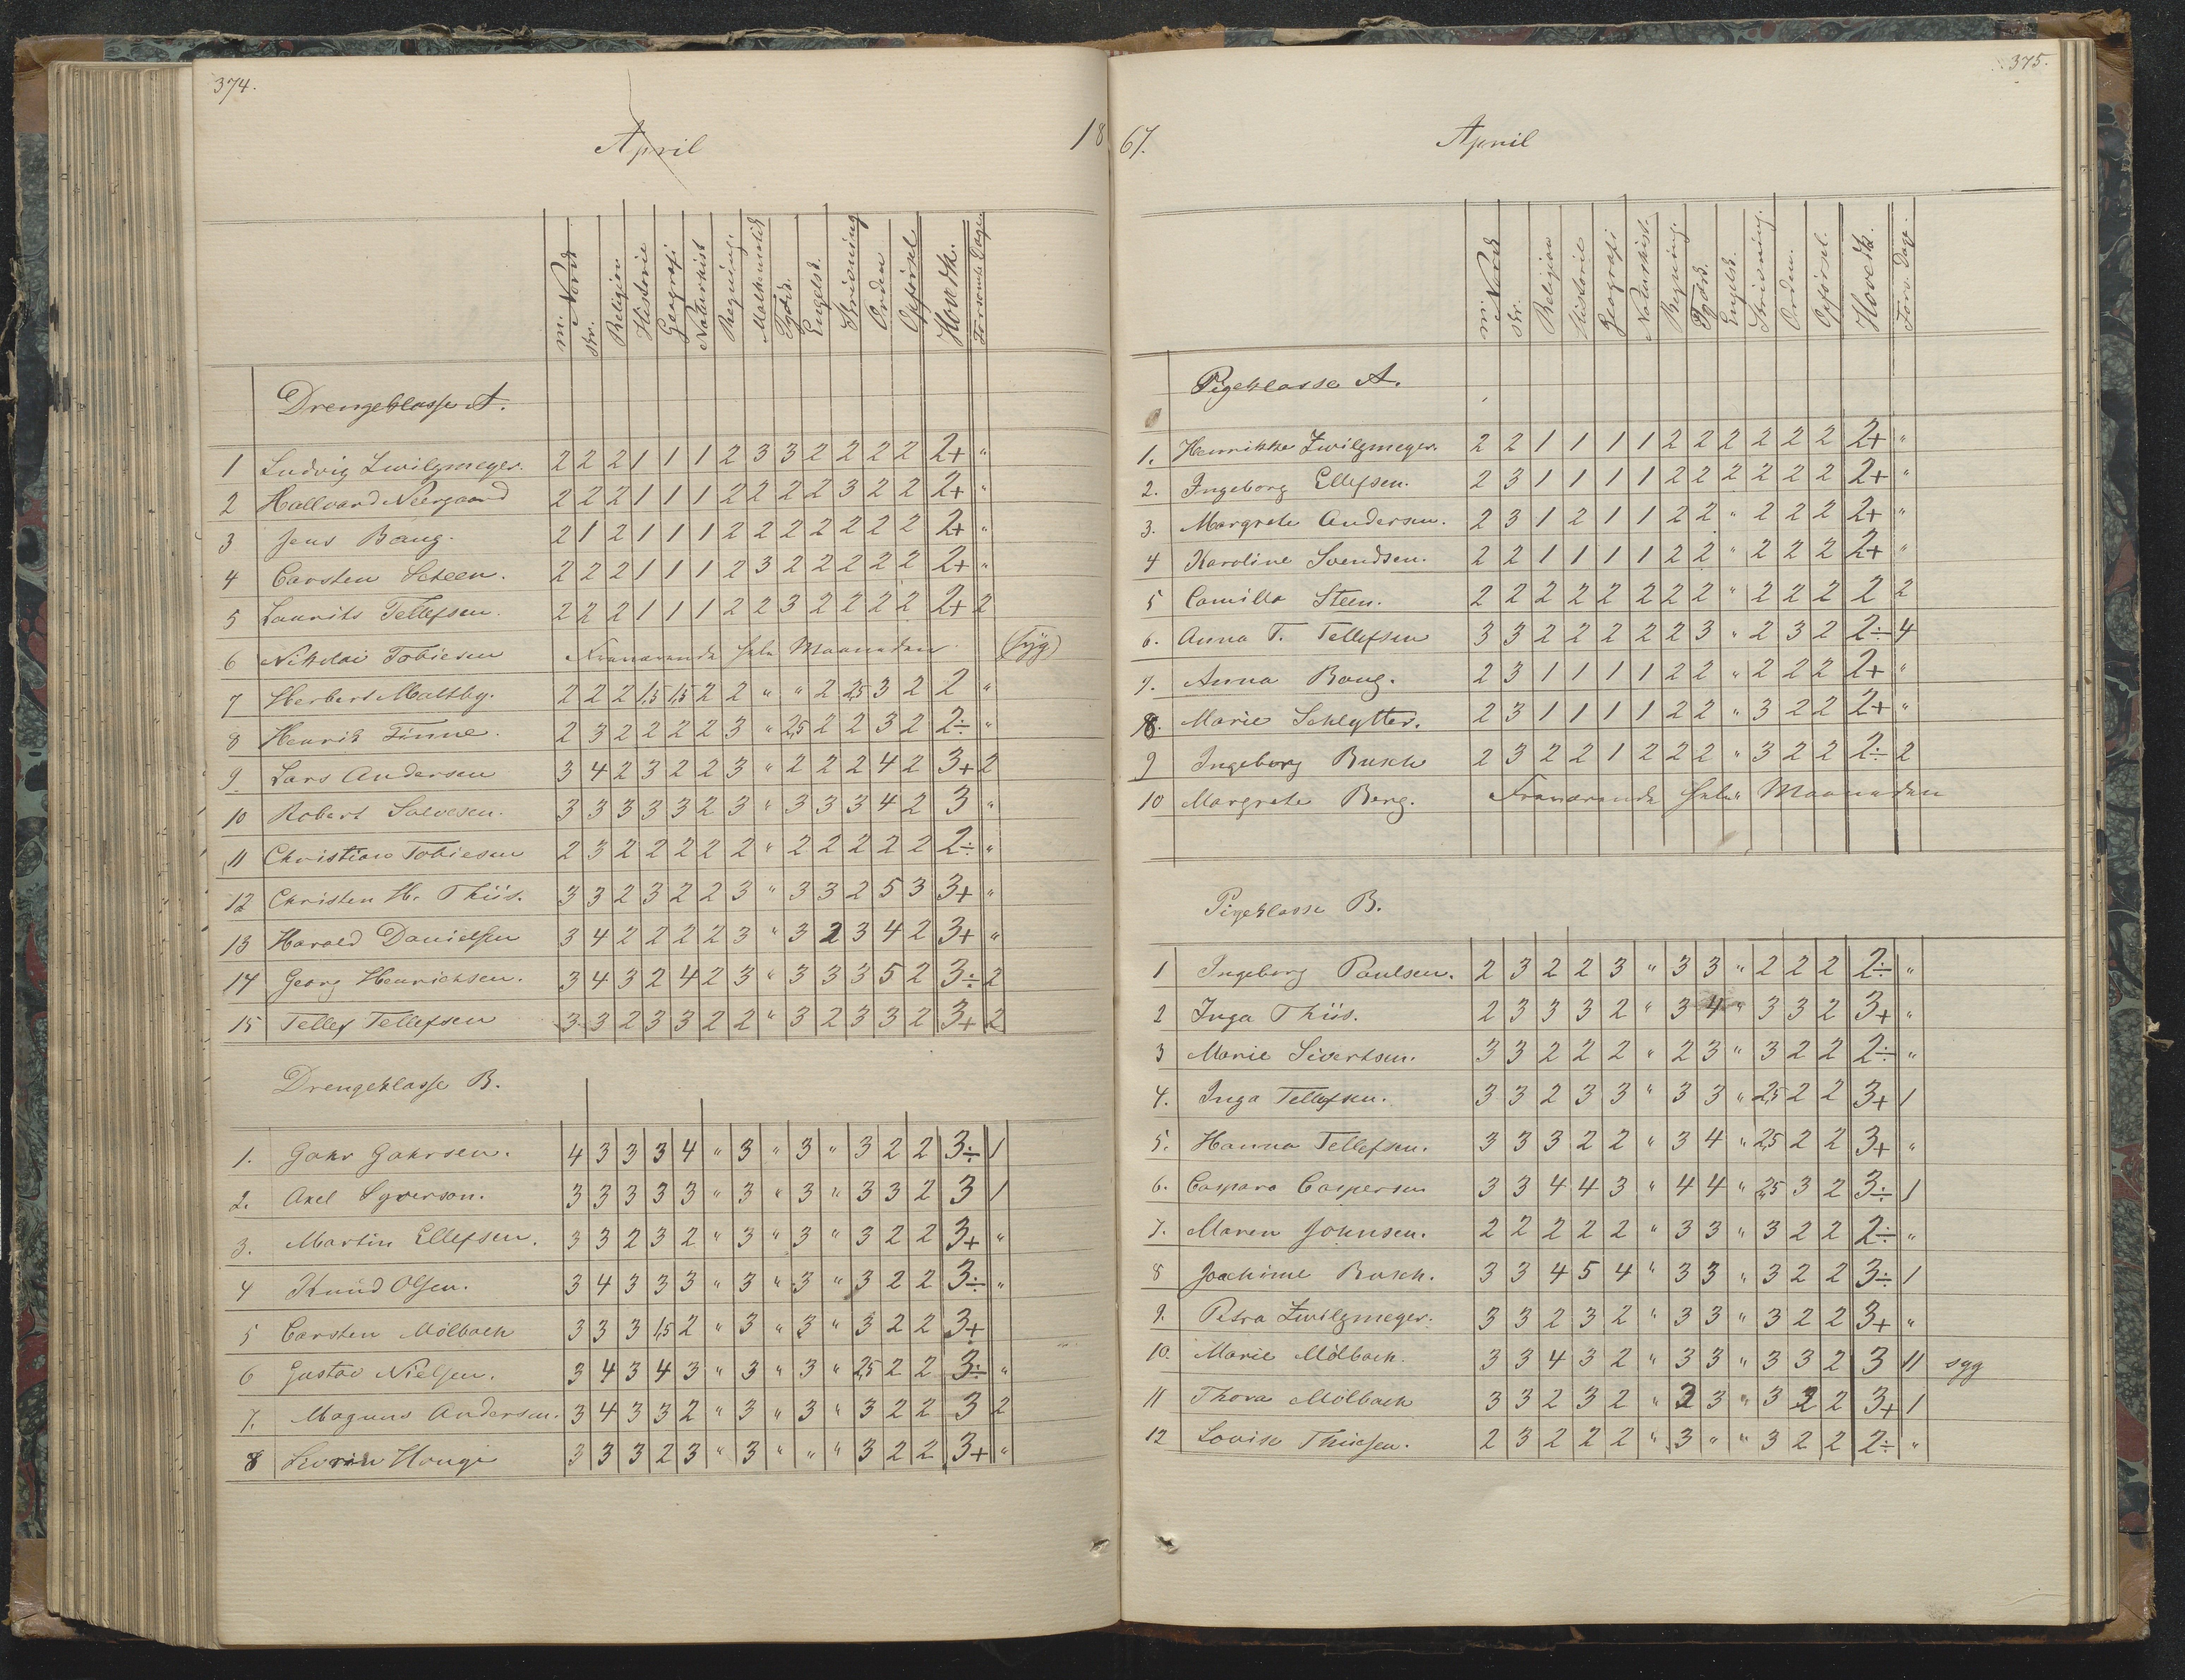 374.
April
18
m. Norsk
skr.
Religion
Historie
Geografi
Naturhist
Regning.
Mathematik
Tydsk.
Engelsk.
Skrivning
Orden
Opførsel
Hovedk.
Forsømte Dage
Drengeklasse A.
1 Ludvig Zwilgmeyer. 2 2 2 1 1 1 2 3 3 2 2 2 2 2+ "
2 Hallvard Neergaard 2 2 2 1 1 1 2 2 2 2 3 2 2 2+ "
3 Jens Bang. 2 1 2 1 1 1 2 2 2 2 2 2 2 2+ "
4 Carsten Steen. 2 2 2 1 1 1 2 3 2 2 2 2 2 2+ "
5 Laurits Tellefsen. 2 2 2 1 1 1 2 2 3 2 2 2 2 2+ 2
6 Nikolai Tobiesen Fraværende hele Maaneden. (syg)
7 Herbert Maltby. 2 2 2 1,5 1,5 2 2 " " 2 2,5 3 2 2 "
8 Henrik Finne. 2 3 2 2 2 2 3 " 2,5 2 2 3 2 2÷ "
9. Lars Andersen 3 4 2 3 2 2 3 " 2 2 2 4 2 3+ 2
10 Robert Salvesen. 3 3 3 3 3 2 3 " 3 3 3 4 2 3 "
11 Christian Tobiesen 2 3 2 2 2 2 2 " 2 2 2 2 2 2÷ "
12 Christen H. Thiis. 3 3 2 3 2 2 3 " 3 3 2 5 3 3+ "
13 Harald Danielsen 3 4 2 2 2 2 3 " 3 2 3 4 2 3+ "
14 Georg Henrichsen. 3 4 3 2 4 2 3 " 3 3 3 5 2 3÷ 2
15 Tellef Tellefsen 3 3 2 3 3 2 2 " 3 2 3 3 2 3+ 2
Drengeklasse B.
1. Gahr Gahrsen. 4 3 3 3 4 " 3 " 3 " 3 2 2 3÷ 1
2. Axel Syverson. 3 3 3 3 3 " 3 " 3 " 3 3 2 3 1
3. Martin Ellefsen. 3 3 2 3 2 " 3 " 3 " 3 2 2 3+ "
4 Knud Olsen. 3 4 3 3 3 " 3 " 3 " 3 2 2 3÷ "
5 Carsten Mölbach 3 3 3 1,5 2 " 3 " 3 " 3 2 2 3+
6 Gustav Nielsen. 3 4 3 4 3 " 3 " 3 " 2,5 2 2 3÷ "
7. Magnus Andersen. 3 4 3 3 2 " 3 " 3 " 3 2 2 3 2
8 3 3 3 2 3 " 3 " " " 3 2 2 3+ "
375.
67.
April
m. Norsk
skr.
Religion
Historie
Geografi
Naturhist.
Regning.
Tydsk.
Engelsk.
Skrivning.
Orden.
Opførsel.
Hovedk.
Fors. Dage.
Pigeklasse A.
1. Henrikke Zwilgmeyer. 2 2 1 1 1 1 2 2 2 2 2 2 2+ "
2. Ingeborg Ellefsen. 2 3 1 1 1 1 2 2 2 2 2 2 2+ "
3. Margrete Andersen. 2 3 1 2 1 1 2 2 " 2 2 2 2+ "
4 Karoline Svendsen. 2 2 1 1 1 1 2 2 " 2 2 2 2+ "
5 Camilla Steen. 2 2 2 2 2 2 2 2 " 2 2 2 2 2
6. Anna T. Tellefsen 3 3 2 2 2 2 2 3 " 2 3 2 2÷ 4
7. Anna Bang. 2 3 1 1 1 1 2 2 " 2 2 2 2+ "
8. Marie Schlytter. 2 3 1 1 1 1 2 2 " 3 2 2 2+ "
9 Ingeborg Busch 2 3 2 2 1 2 2 2 " 3 2 2 2÷ 2
10 Margrete Berg. Fraværende hele Maaneden
Pigeklasse B.
1 Ingeborg Paulsen. 2 3 2 2 3 " 3 3 " 2 2 2 2÷ "
2 Inga Thiis. 2 3 3 3 2 " 3 4 " 3 3 2 3+ "
3 Marie Sivertsen. 3 3 2 2 2 " 2 3 " 3 2 2 2÷ "
4. Inga Tellefsen. 3 3 2 3 3 " 3 3 " 2,5 2 2 3+ 1
5. Hanna Tellefsen. 3 3 3 2 2 " 3 4 " 2,5 2 2 3+ "
6. Caspara Caspersen 3 3 4 4 3 " 4 4 " 2,5 3 2 3÷ 1
7. Maren Johnsen. 2 2 2 2 2 " 3 3 " 3 2 2 2÷ "
8 Jochime Busch. 3 3 4 5 4 " 3 3 " 3 2 2 3÷ 1
9. Petra Zwilgmeyer. 3 3 2 3 2 " 3 3 " 3 2 2 3+ "
10. Marie Mölbach. 3 3 4 3 2 " 3 3 " 3 3 2 3 11 syg
11 Thora Mölbach 3 3 2 3 2 " 3 3 " 3 2 2 3+ 1
12 Lovise Thiesen. 2 3 2 2 2 " 3 " " 3 2 2 2÷ "